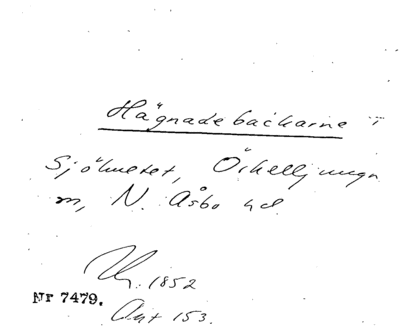 Hägnadebackarne i
Sjöhuset, Örkelljunga
m, N. Åsbo hd.
1852
Nr 7479.
Akt 153.